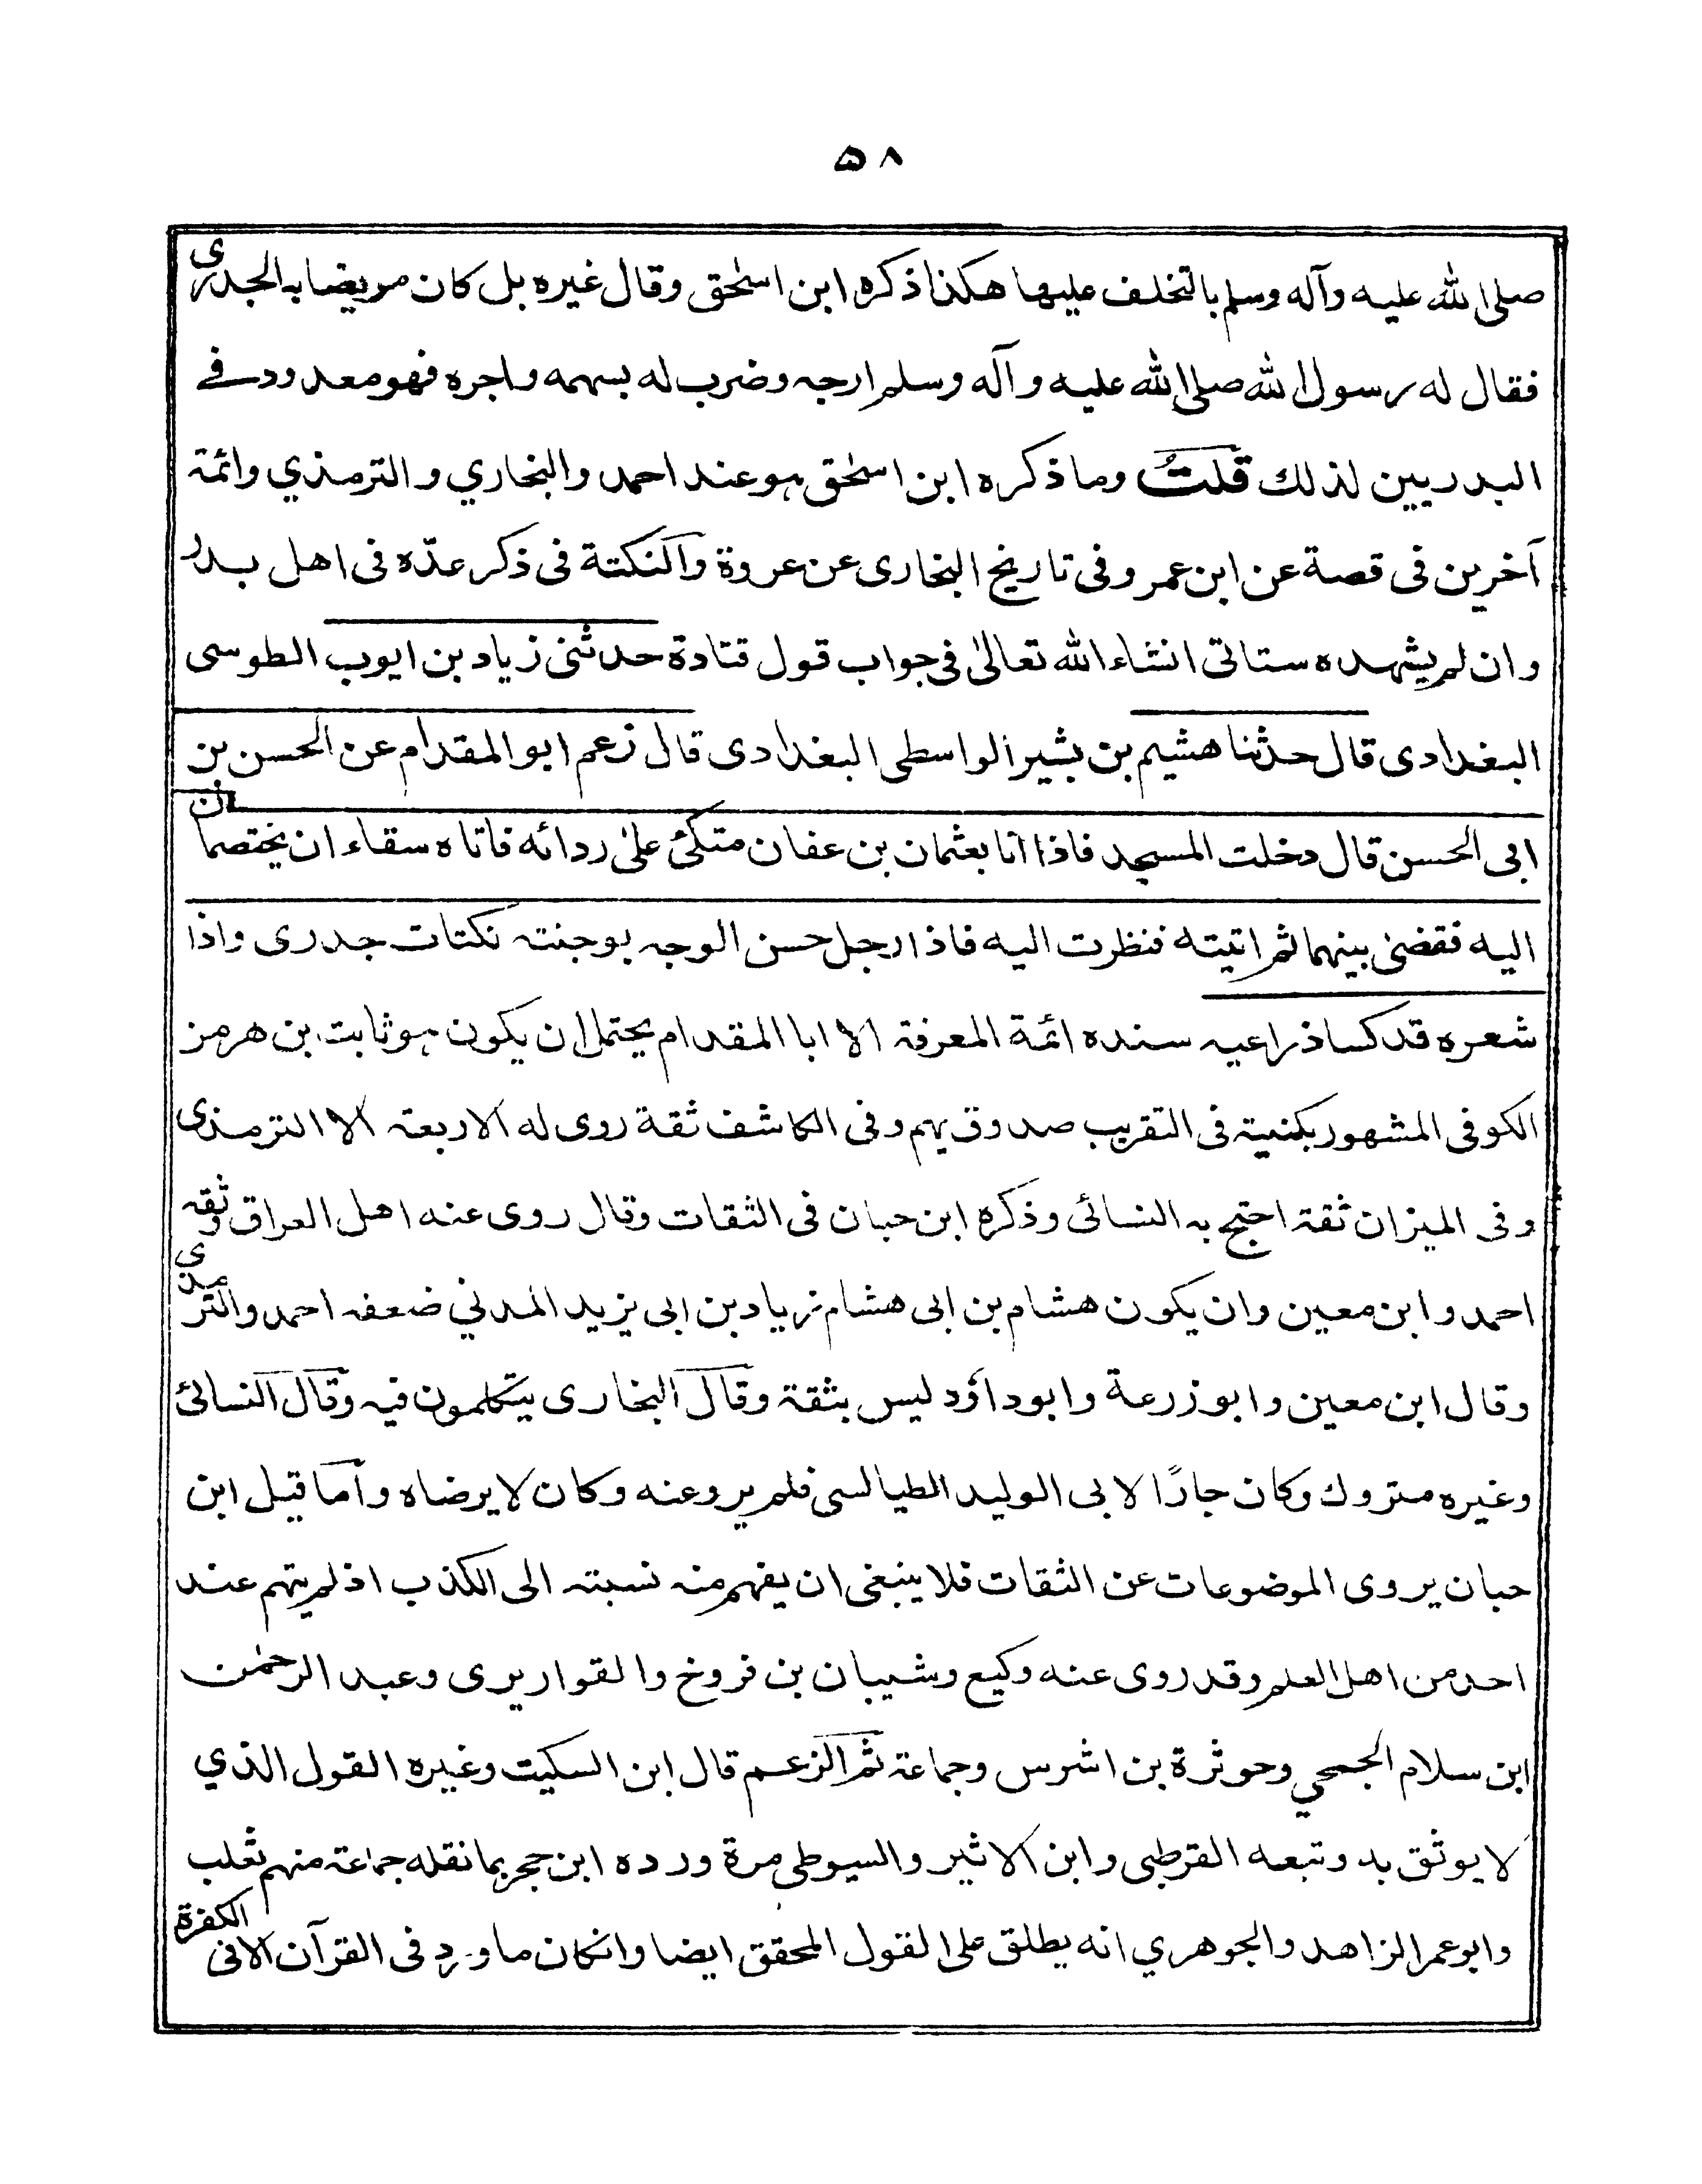 ٥٨
صلى الله عليه وآله وسلم بالتخلف عليها هكذا ذكره ابن اسحٰق وقال غيره بل كان مريضا به الجدري
فقال له رسول الله صلى الله عليه وآله وسلم ارجه وضرب له بسهمه واجره فهو معدود فے
البدريين لذلك قلتُ وما ذكره ابن اسحٰق هو عند احمد والبخاري والترمذي وائمة
آخرين فى قصة عن ابن عمر وفى تاريخ البخارى عن عروة والنكتة فى ذكر عدّه فى اهل بدر
وان لم يشهده ستاتى انشاء الله تعالىٰ فى جواب قول قتادة حدثنى زياد بن ايوب الطوسى
البغدادى قال حدثنا هشيم بن بشير الواسطى البغدادى قال زعم ابو المقدام عن الحسن بن
ابى الحسن قال دخلت المسجد فاذا انا بعثمان بن عفان متكئ علىٰ ردائه فاتاه سقاء ان يختصمان
اليه فقضىٰ بينهما ثم اتيته فنظرت اليه فاذا رجل حسن الوجه بوجنته نكتات جدرى واذا
شعره قد كسا ذراعيه سنده ائمة المعرفة الا ابا المقدام يحتمل ان يكون هو ثابت بن هرمز
الكوفى المشهور بكنيته فى التقريب صدوق يهم وفى الكاشف ثقة روى له الاربعة الا الترمذى
وفى الميزان ثقة احتج به النسائى وذكره ابن حبان فى الثقات وقال روى عنه اهل العراق وثقه
احمد وابن معين وان يكون هشام بن ابى هشام زياد بن ابى يزيد المدني ضعفه احمد والترمذى
وقال ابن معين وابو زرعة وابو داؤد ليس بثقة وقال البخارى يتكلمون فيه وقال النسائى
وغيره متروك وكان جارًا لابى الوليد الطيالسى فلم يرو عنه وكان لا يرضاه وأما قيل ابن
حبان يروى الموضوعات عن الثقات فلا ينبغى ان يفهم منه نسبته الى الكذب اذ لم يتهم عند
احد من اهل العلم وقد روى عنه وكيع وشيبان بن فروخ والقواريرى وعبد الرحمٰن
ابن سلام الجمحي وحوثرة بن اشرس وجماعة ثم الزعم قال ابن السكيت وغيره القول الذي
لا يوثق به وتبعه القرطبى وابن الاثير والسيوطى مرة ورده ابن حجر بما نقله جماعة منهم ثعلب
وابو عمر الزاهد والجوهري انه يطلق على القول المحقق ايضا وانكان ما ورد فى القرآن الا فى الكفرة